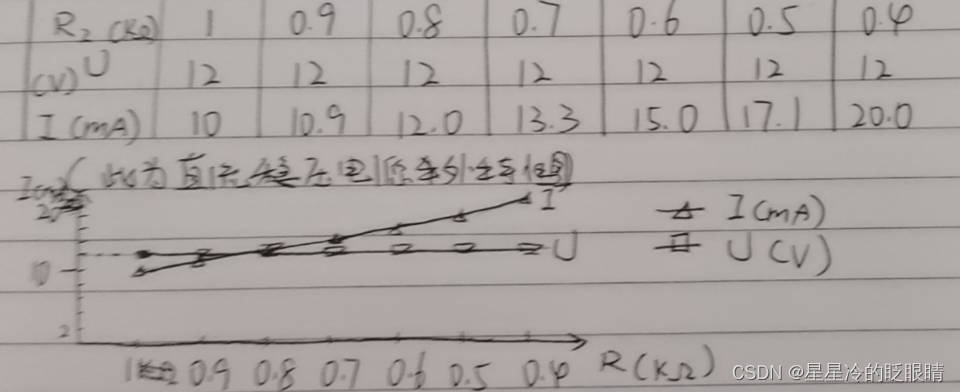 R₂ (KΩ) 1 0.9 0.8 0.7 0.6 0.5 0.4
(V) U 12 12 12 12 12 12 12
I (mA) 10 10.9 12.0 13.3 15.0 17.1 20.0
(此为直流稳压电源外特
20
I
I (mA)
U
U (V)
10
2
1KΩ 0.9 0.8 0.7 0.6 0.5 0.4 R (KΩ)
CSDN @星星冷的眨眼睛